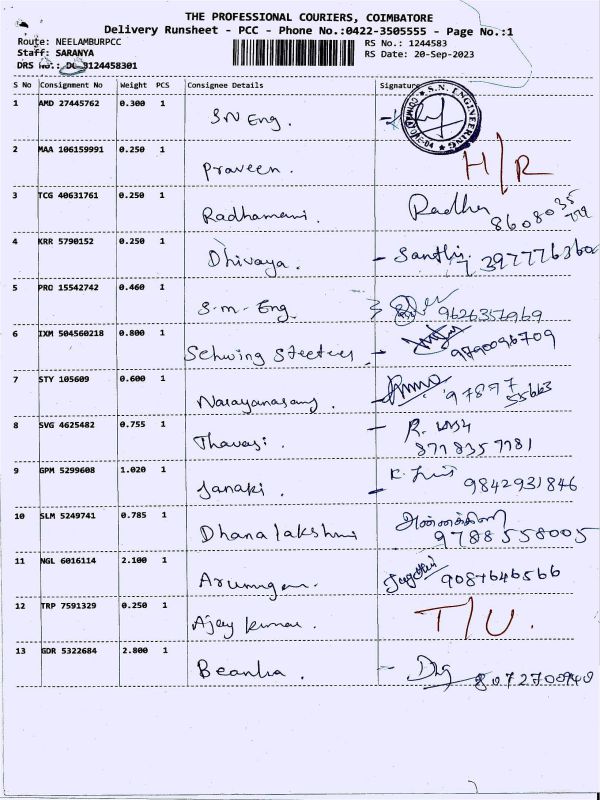 THE PROFESSIONAL COURIERS, COIMBATORE
Delivery Runsheet - PCC - Phone No.:0422-3505555 - Page No.:1
Route: NEELAMBURPCC RS No.: 1244583
Staff: SARANYA RS Date: 20-Sep-2023
DRS No.: D 3124458301
S No Consignment No Weight PCS Consignee Details Signature
S.N. ENGINEERING
1 AMD 27445762 0.300 1 S.N Eng.
2 MAA 106159991 0.250 1 Praveen. H/R
3 TCG 40631761 0.250 1 Radhamani. Radha
8608035
4 KRR 5790152 0.250 1 Dhivaya. - Santhi
7397776360
5 PRO 15542742 0.460 1 S.m- Eng.
9626357969
6 IXM 504560218 0.800 1 Schwing Stetter -
9790096709
7 STY 105609 0.600 1 Narayanasamy. - 97877
55663
8 SVG 4625482 0.755 1 Thavasi. - R.
8778357781
9 GPM 5299608 1.020 1 Janaki. - K.
9842931846
10 SLM 5249741 0.785 1 Dhanalakshmi
9788558005
11 NGL 6016114 2.100 1 Arumugam. 9087646566
12 TRP 7591329 0.250 1 Ajay kumar. T/U.
13 GDR 5322684 2.800 1 -
8072700940